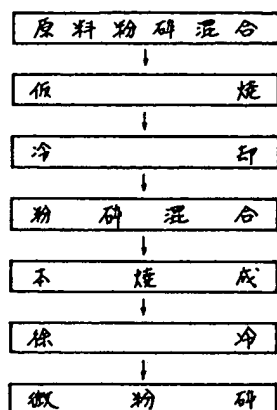 原料粉砕混合
仮焼
冷却
粉砕混合
本焼成
徐冷
微粉砕